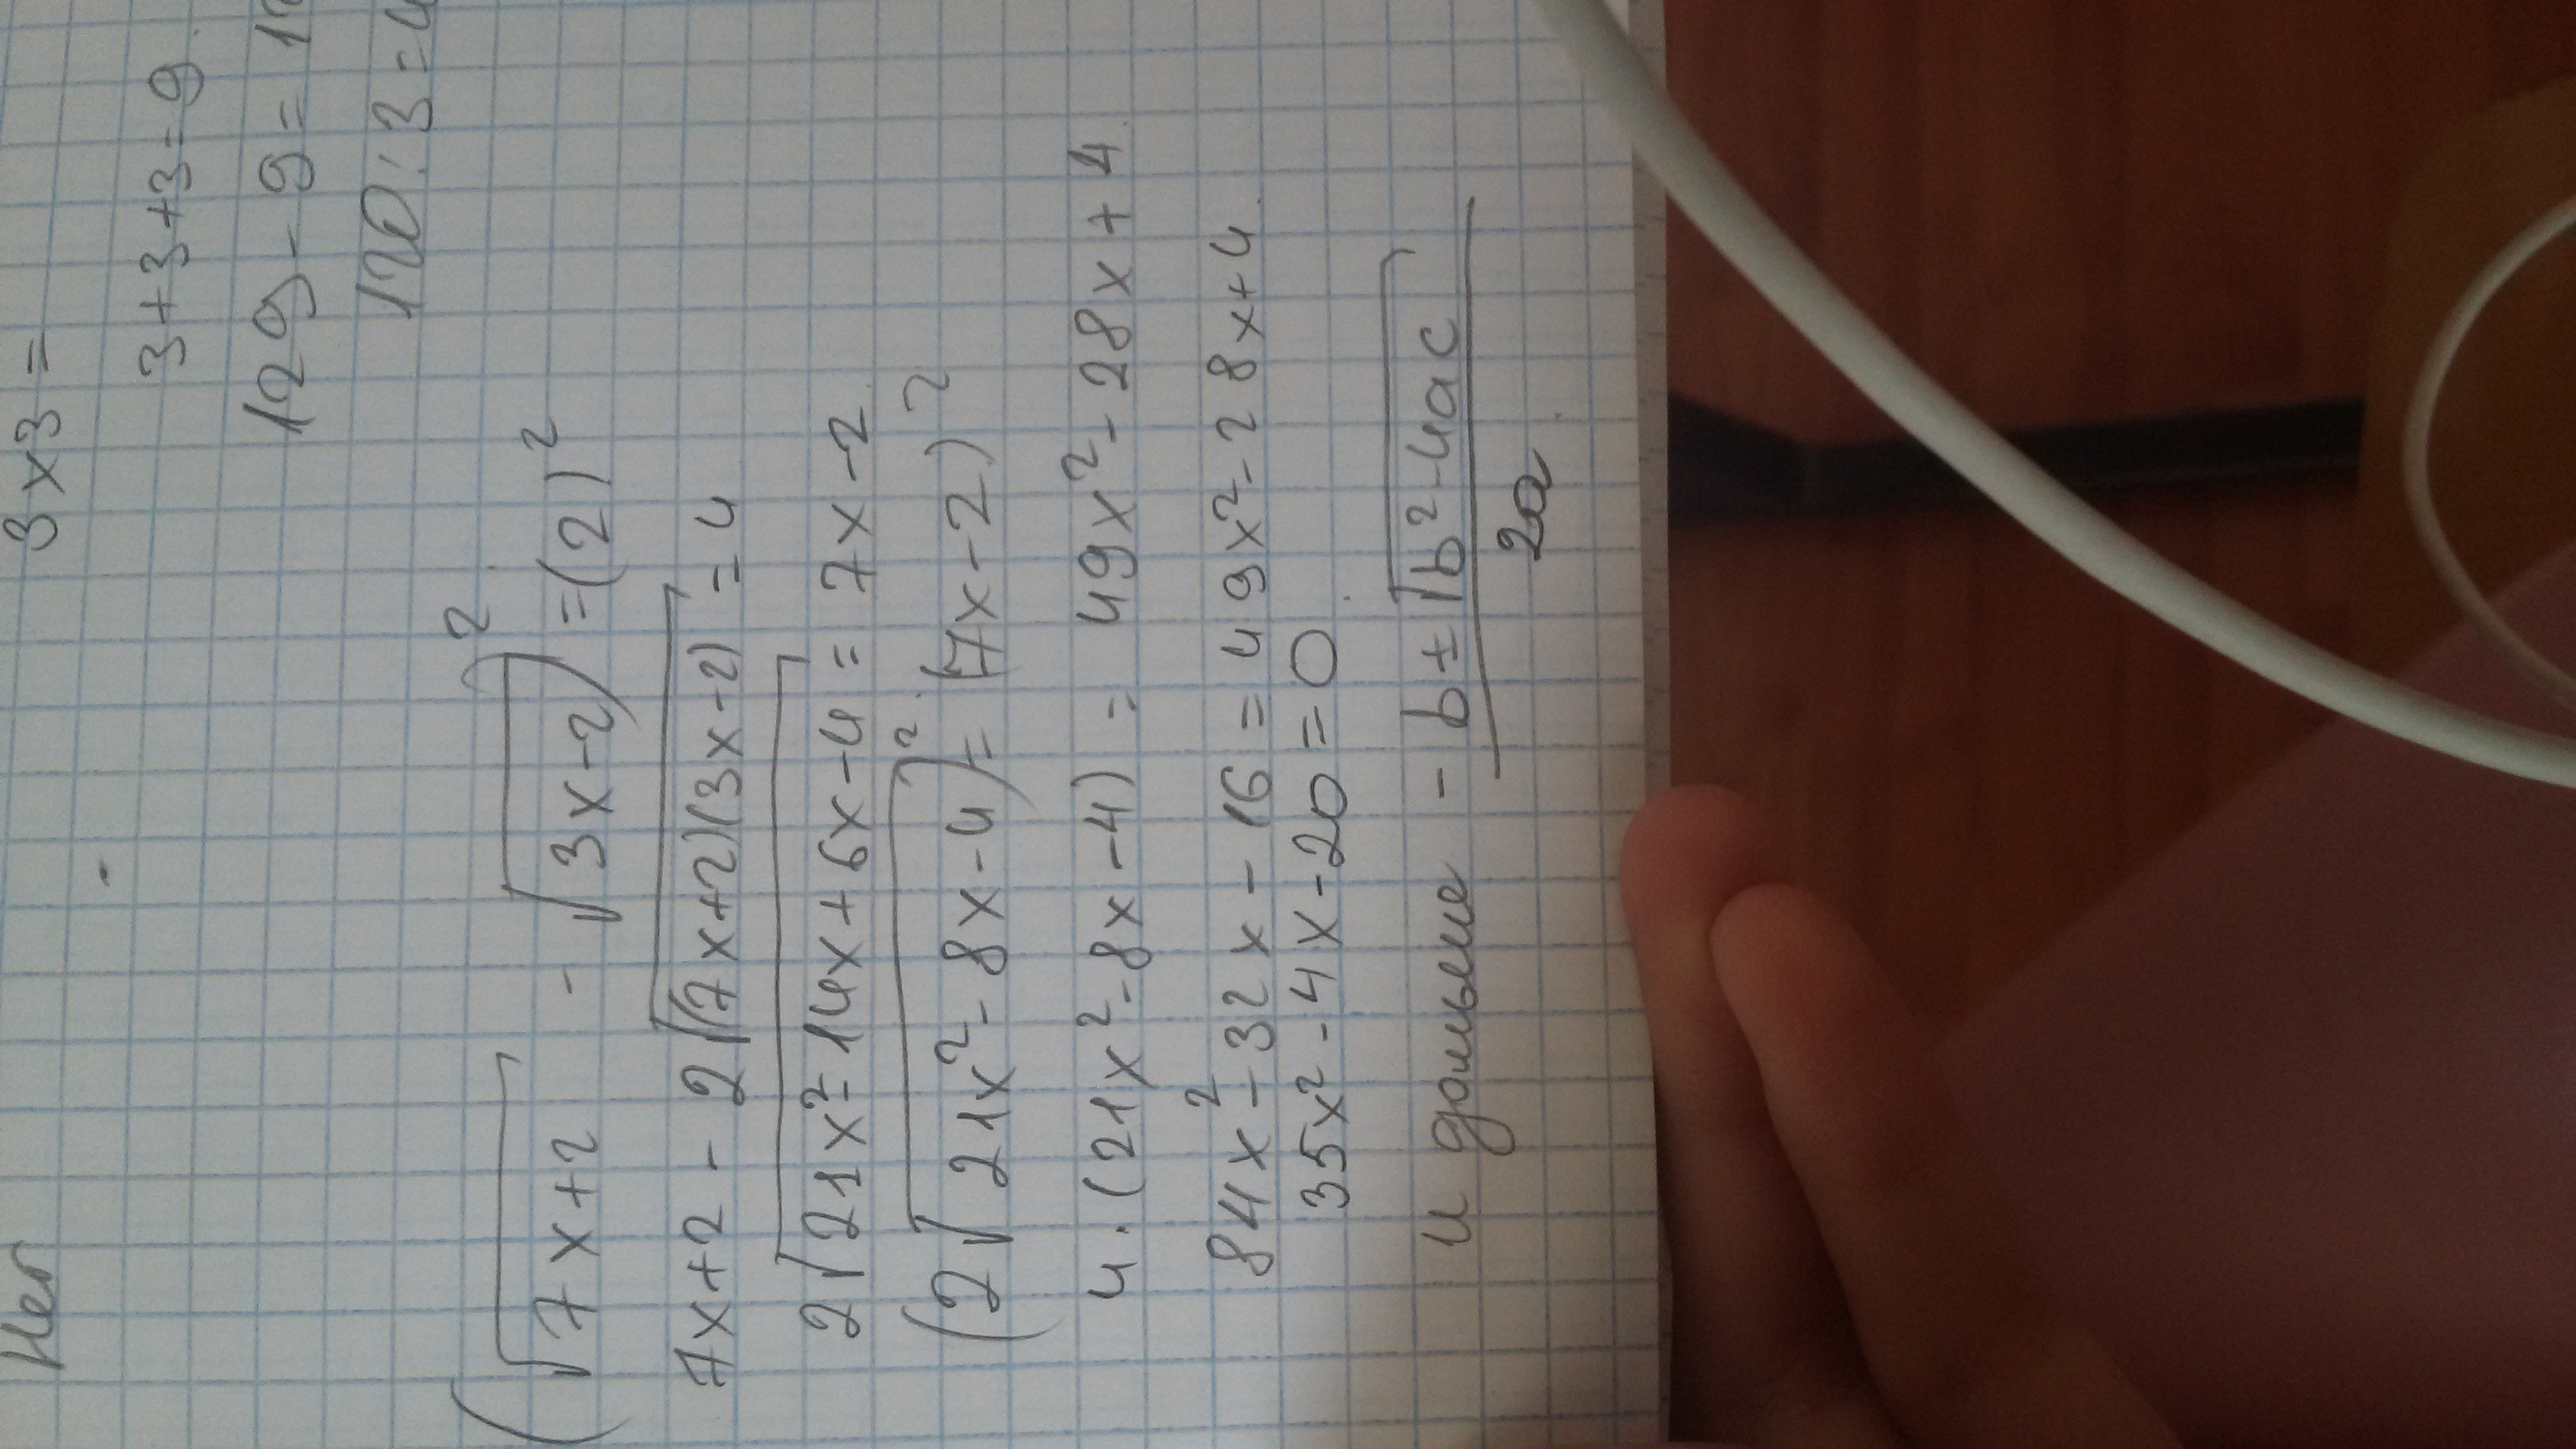 3x3=
3+3+3=9.
129-9=1
120:3=4
(√7x+2 - √3x-2)² =(2)²
7x+2 - 2√(7x+2)(3x-2) = 4
2√21x²-14x+6x-4 = 7x-2
(2√21x²-8x-4)² = (7x-2)²
4·(21x²-8x-4) = 49x²-28x+4
84x²-32x-16=49x²-28x+4
35x²-4x-20=0
и дальше -b±√b²-4ac
2a